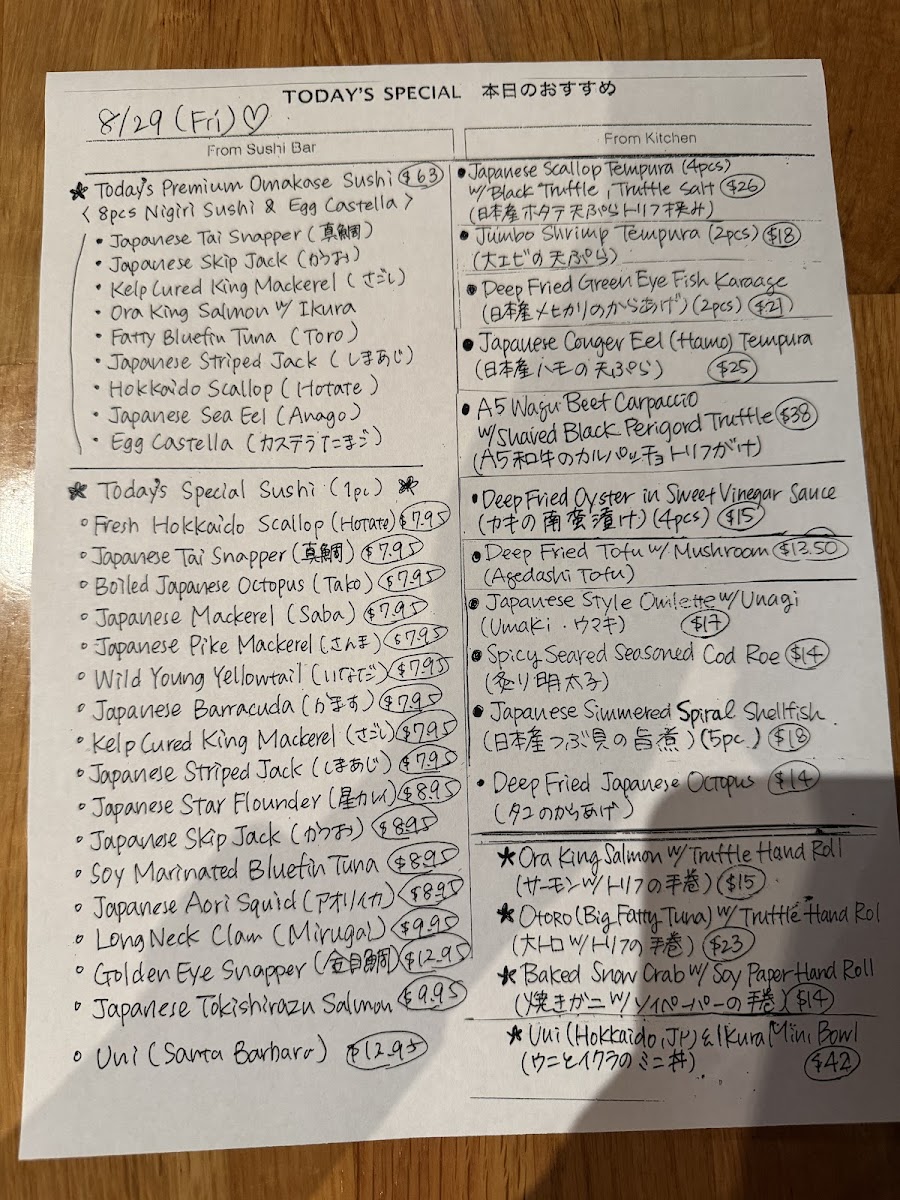 TODAY'S SPECIAL 本日のおすすめ
8/29 (Fri) ♡
From Sushi Bar
★ Today's Premium Omakase Sushi $63
< 8pcs Nigiri Sushi & Egg Castella >
• Japanese Tai Snapper (真鯛)
• Japanese Skip Jack (かつお)
• Kelp Cured King Mackerel (さごし)
• Ora King Salmon w/ Ikura
• Fatty Bluefin Tuna (Toro)
• Japanese Striped Jack (しまあじ)
• Hokkaido Scallop (Hotate)
• Japanese Sea Eel (Anago)
• Egg Castella (カステラたまご)
★ Today's Special Sushi (1pc) ★
○ Fresh Hokkaido Scallop (Hotate) $7.95
○ Japanese Tai Snapper (真鯛) $7.95
○ Boiled Japanese Octopus (Tako) $7.95
○ Japanese Mackerel (Saba) $7.95
○ Japanese Pike Mackerel (さんま) $7.95
○ Wild Young Yellowtail (いなだ) $7.95
○ Japanese Barracuda (かます) $7.95
○ Kelp Cured King Mackerel (さごし) $7.95
○ Japanese Striped Jack (しまあじ) $7.95
○ Japanese Star Flounder (星カレイ) $8.95
○ Japanese Skip Jack (かつお) $8.95
○ Soy Marinated Bluefin Tuna $8.95
○ Japanese Aori Squid (アオリイカ) $8.95
○ Long Neck Clam (Mirugai) $9.95
○ Golden Eye Snapper (金目鯛) $12.95
○ Japanese Tokishirazu Salmon $9.95
○ Uni (Santa Barbara) $12.95
From Kitchen
• Japanese Scallop Tempura (4pcs)
w/ Black Truffle, Truffle Salt $26
(日本産ホタテ天ぷらトリフ挟み)
• Jumbo Shrimp Tempura (2pcs) $18
(大エビの天ぷら)
• Deep Fried Green Eye Fish Karaage
(日本産メヒカリのからあげ) (2pcs) $21
• Japanese Conger Eel (Hamo) Tempura
(日本産ハモの天ぷら) $25
• A5 Wagu Beet Carpaccio
w/ Shaved Black Perigord Truffle $38
(A5和牛のカルパッチョトリフがけ)
• Deep Fried Oyster in Sweet Vinegar Sauce
(カキの南蛮漬け) (4pcs) $15
• Deep Fried Tofu w/ Mushroom $13.50
(Agedashi Tofu)
• Japanese Style Omlette w/ Unagi
(Umaki・ウマキ) $17
• Spicy Seared Seasoned Cod Roe $14
(炙り明太子)
• Japanese Simmered Spiral Shellfish
(日本産つぶ貝の旨煮) (5pc.) $18
• Deep Fried Japanese Octopus $14
(タコのからあげ)
★ Ora King Salmon w/ Truffle Hand Roll
(サーモンw/トリフの手巻) $15
★ Otoro (Big Fatty Tuna) w/ Truffle Hand Rol
(大トロw/トリフの手巻) $23
★ Baked Snow Crab w/ Soy Paper Hand Roll
(焼きガニw/ソイペーパーの手巻) $14
★ Uni (Hokkaido, JP) & Ikura Mini Bowl
(ウニとイクラのミニ丼) $42